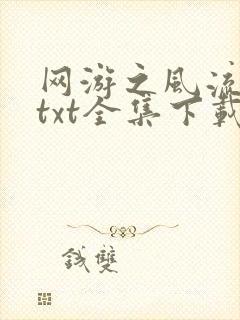 网游之风流
txt全集下载
钱双